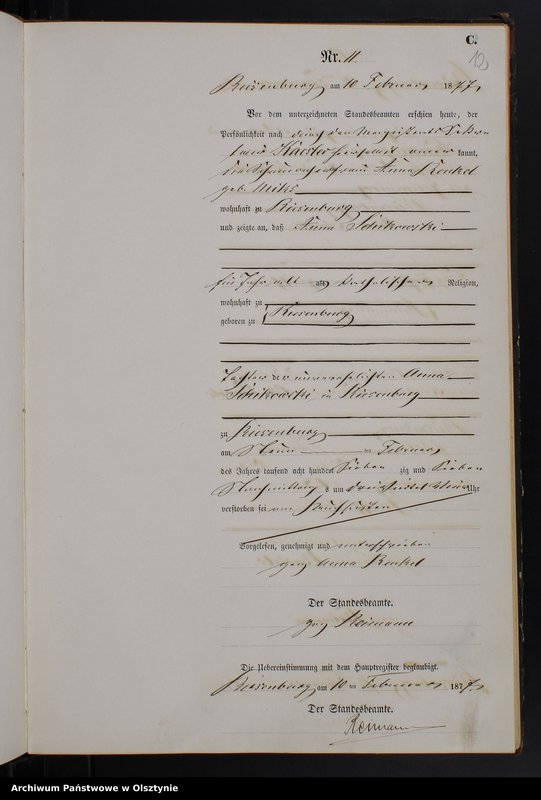 C.
12
Nr. 11.
Riesenburg am 10 Februar 1877
Vor dem unterzeichneten Standesbeamten erschien heute, der
Persönlichkeit nach durch den Magistrats Sekre
Kaester kannt,
die Anna Renkel
geb.
wohnhaft zu Riesenburg
und zeigte an, daß Anna Schikowski
ein Jahr alt katholischer Religion,
wohnhaft zu
geboren zu Riesenburg
Tochter der unverehelichten Anna
Schikowski in Riesenburg
zu Riesenburg
am Neun ten Februar
des Jahres tausend acht hundert sieben zig und sieben
Nachmittags um Uhr
verstorben sei
Vorgelesen, genehmigt und unterschrieben
gez Anna Renkel
Der Standesbeamte.
gez Reimann
Die Uebereinstimmung mit dem Hauptregister beglaubigt.
Riesenburg am 10 ten Februar 1877
Der Standesbeamte.
Reimann
Archiwum Państwowe w Olsztynie